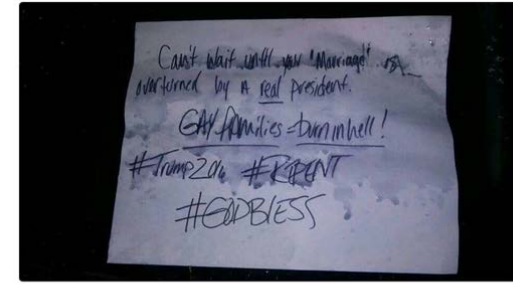 Can't wait until your "Marriage" is
overturned by A real president.
GAY families = burn in hell!
#Trump2016 #REPENT
#GODBLESS